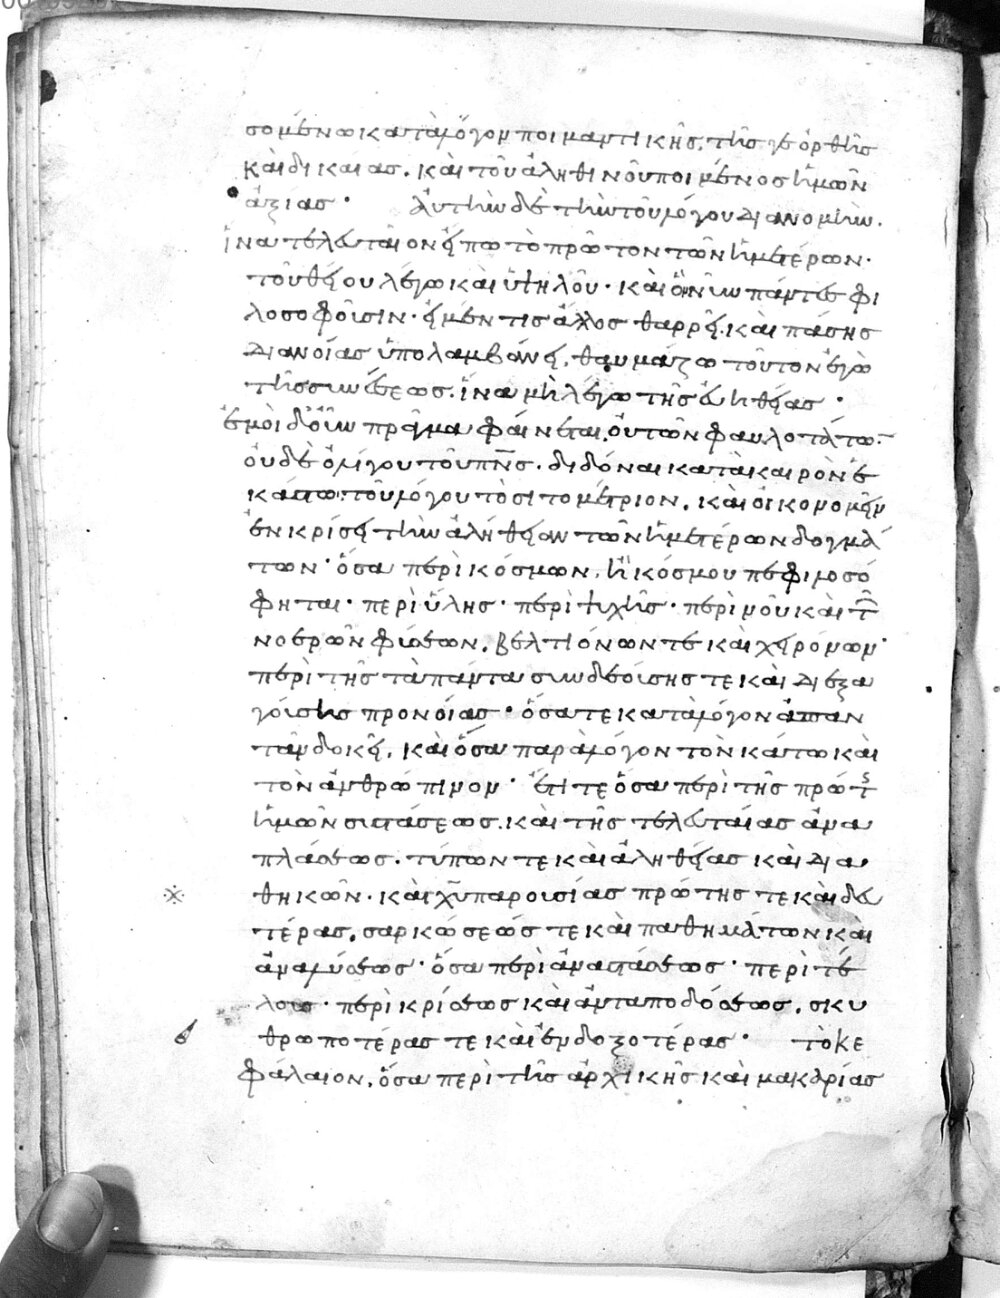 σομένω κατὰ λόγον ποιμαντικῆς. τῆς γε ὀρθῆς
καὶ δικαίας. καὶ τοῦ ἀληθινοῦ ποιμένος ἡμῶν
ἀξίας· Αὐτὴν δὲ τὴν τοῦ λόγου διανομὴν.
ἵνα τελευταῖον εἴπω τὸ πρῶτον τῶν ἡμετέρων·
τοῦ θείου λέγω καὶ ὑψηλοῦ· καὶ ὃν νῦν πάντες φι
λοσοφοῦσιν· εἰ μέν τις ἄλλος θαρρεῖ. καὶ πάσης
διανοίας ὑπολαμβάνει, θαυμάζω τοῦτον ἐγὼ
τῆς συνέσεως. ἵνα μὴ λέγω τῆς εὐηθείας·
ἐμοὶ δ' οὖν πρᾶγμα φαίνεται, οὐ τῶν φαυλοτάτων.
οὐδὲ ὀλίγου τοῦ πν̅ς. διδόναι κατὰ καιρὸν ἑ
κάστω τοῦ λόγου τὸ σιτομέτριον, καὶ οἰκονομεῖν
ἐν κρίσει τὴν ἀλήθειαν τῶν ἡμετέρων δογμά
των· ὅσα περὶ κόσμων, ἢ κόσμου πεφιλοσό
φηται· περὶ ὕλης· περὶ ψυχῆς· περὶ νοῦ καὶ τῶν
νοερῶν φύσεων, βελτιόνων τε καὶ χειρόνων·
περὶ τῆς τὰ πάντα συνδεούσης τε καὶ διεξα
γούσης προνοίας· ὅσα τε κατὰ λόγον ἀπαν
τᾶν δοκεῖ, καὶ ὅσα παρὰ λόγον τὸν κάτω καὶ
τὸν ἀνθρώπινον· ἔτι τε ὅσα περὶ τῆς πρώτης
ἡμῶν συστάσεως. καὶ τῆς τελευταίας ἀνα
πλάσεως. τύπων τε καὶ ἀληθείας καὶ δια
θηκῶν. καὶ χ̅υ̅ παρουσίας πρώτης τε καὶ δευ
τέρας, σαρκώσεώς τε καὶ παθημάτων καὶ
ἀναλύσεως· ὅσα περὶ ἀναστάσεως· περὶ τέ
λους· περὶ κρίσεως καὶ ἀνταποδόσεως, σκυ
θρωποτέρας τε καὶ ἐνδοξοτέρας· τὸ κε
φάλαιον, ὅσα περὶ τῆς ἀρχικῆς καὶ μακαρίας